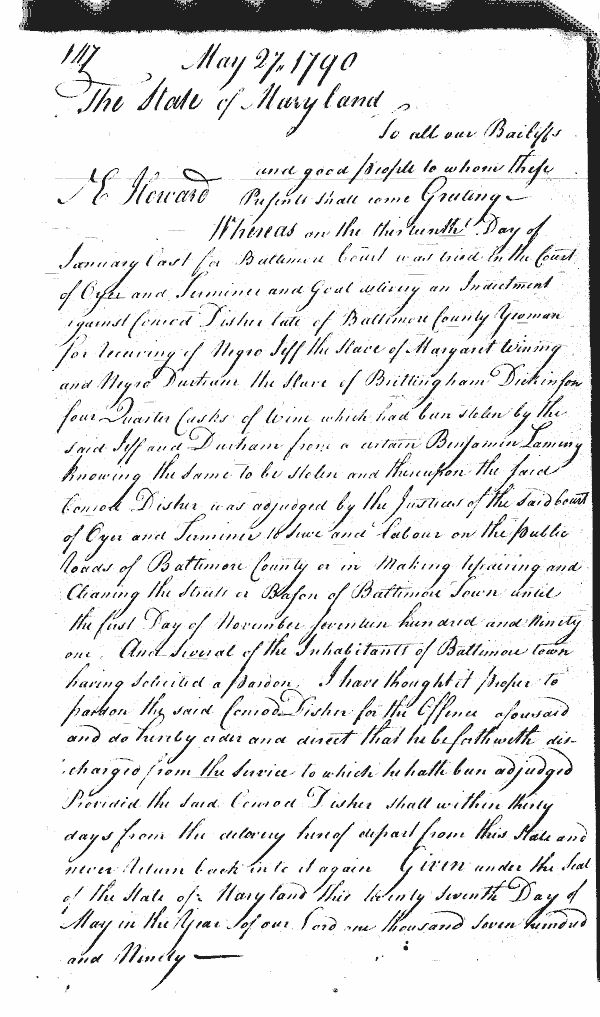 147
May 27. 1790
The State of Maryland
To all our Bailiffs
and good people to whom these
J E Howard Presents shall come Greeting
Whereas on the thirteenth Day of
January last for Baltimore Court was tried in the Court
of Oyer and Terminer and Goal delivery an Indictment
against Conrod Disher late of Baltimore County Yeoman
for receiving of Negro Jeff the Slave of Margaret Wining
and Negro Durham the Slave of Brittingham Dickinson
four Quarter Casks of Wine which had been stolen by the
said Jeff and Durham from a certain Benjamin Lameng
knowing the same to be stolen and thereupon the said
Conrod Disher was adjudged by the Justices of the said Court
of Oyer and Terminer to serve and labour on the public
roads of Baltimore County or in Making repairing and
Cleaning the Streets or Bason of Baltimore Town until
the first Day of November seventeen hundred and Ninety
one. And several of the Inhabitants of Baltimore town
having solicited a pardon. I have thought it proper to
pardon the said Conrod Disher for the Offence aforesaid
and do hereby order and direct that he be forthwith dis-
charged from the Service to which he hath been adjudged
Provided the said Conrod Disher shall within thirty
days from the delivery hereof depart from this State and
never Return back into it again Given under the Seal
of the State of Maryland this twenty seventh Day of
May in the Year of our Lord one thousand seven hundred
and Ninety —